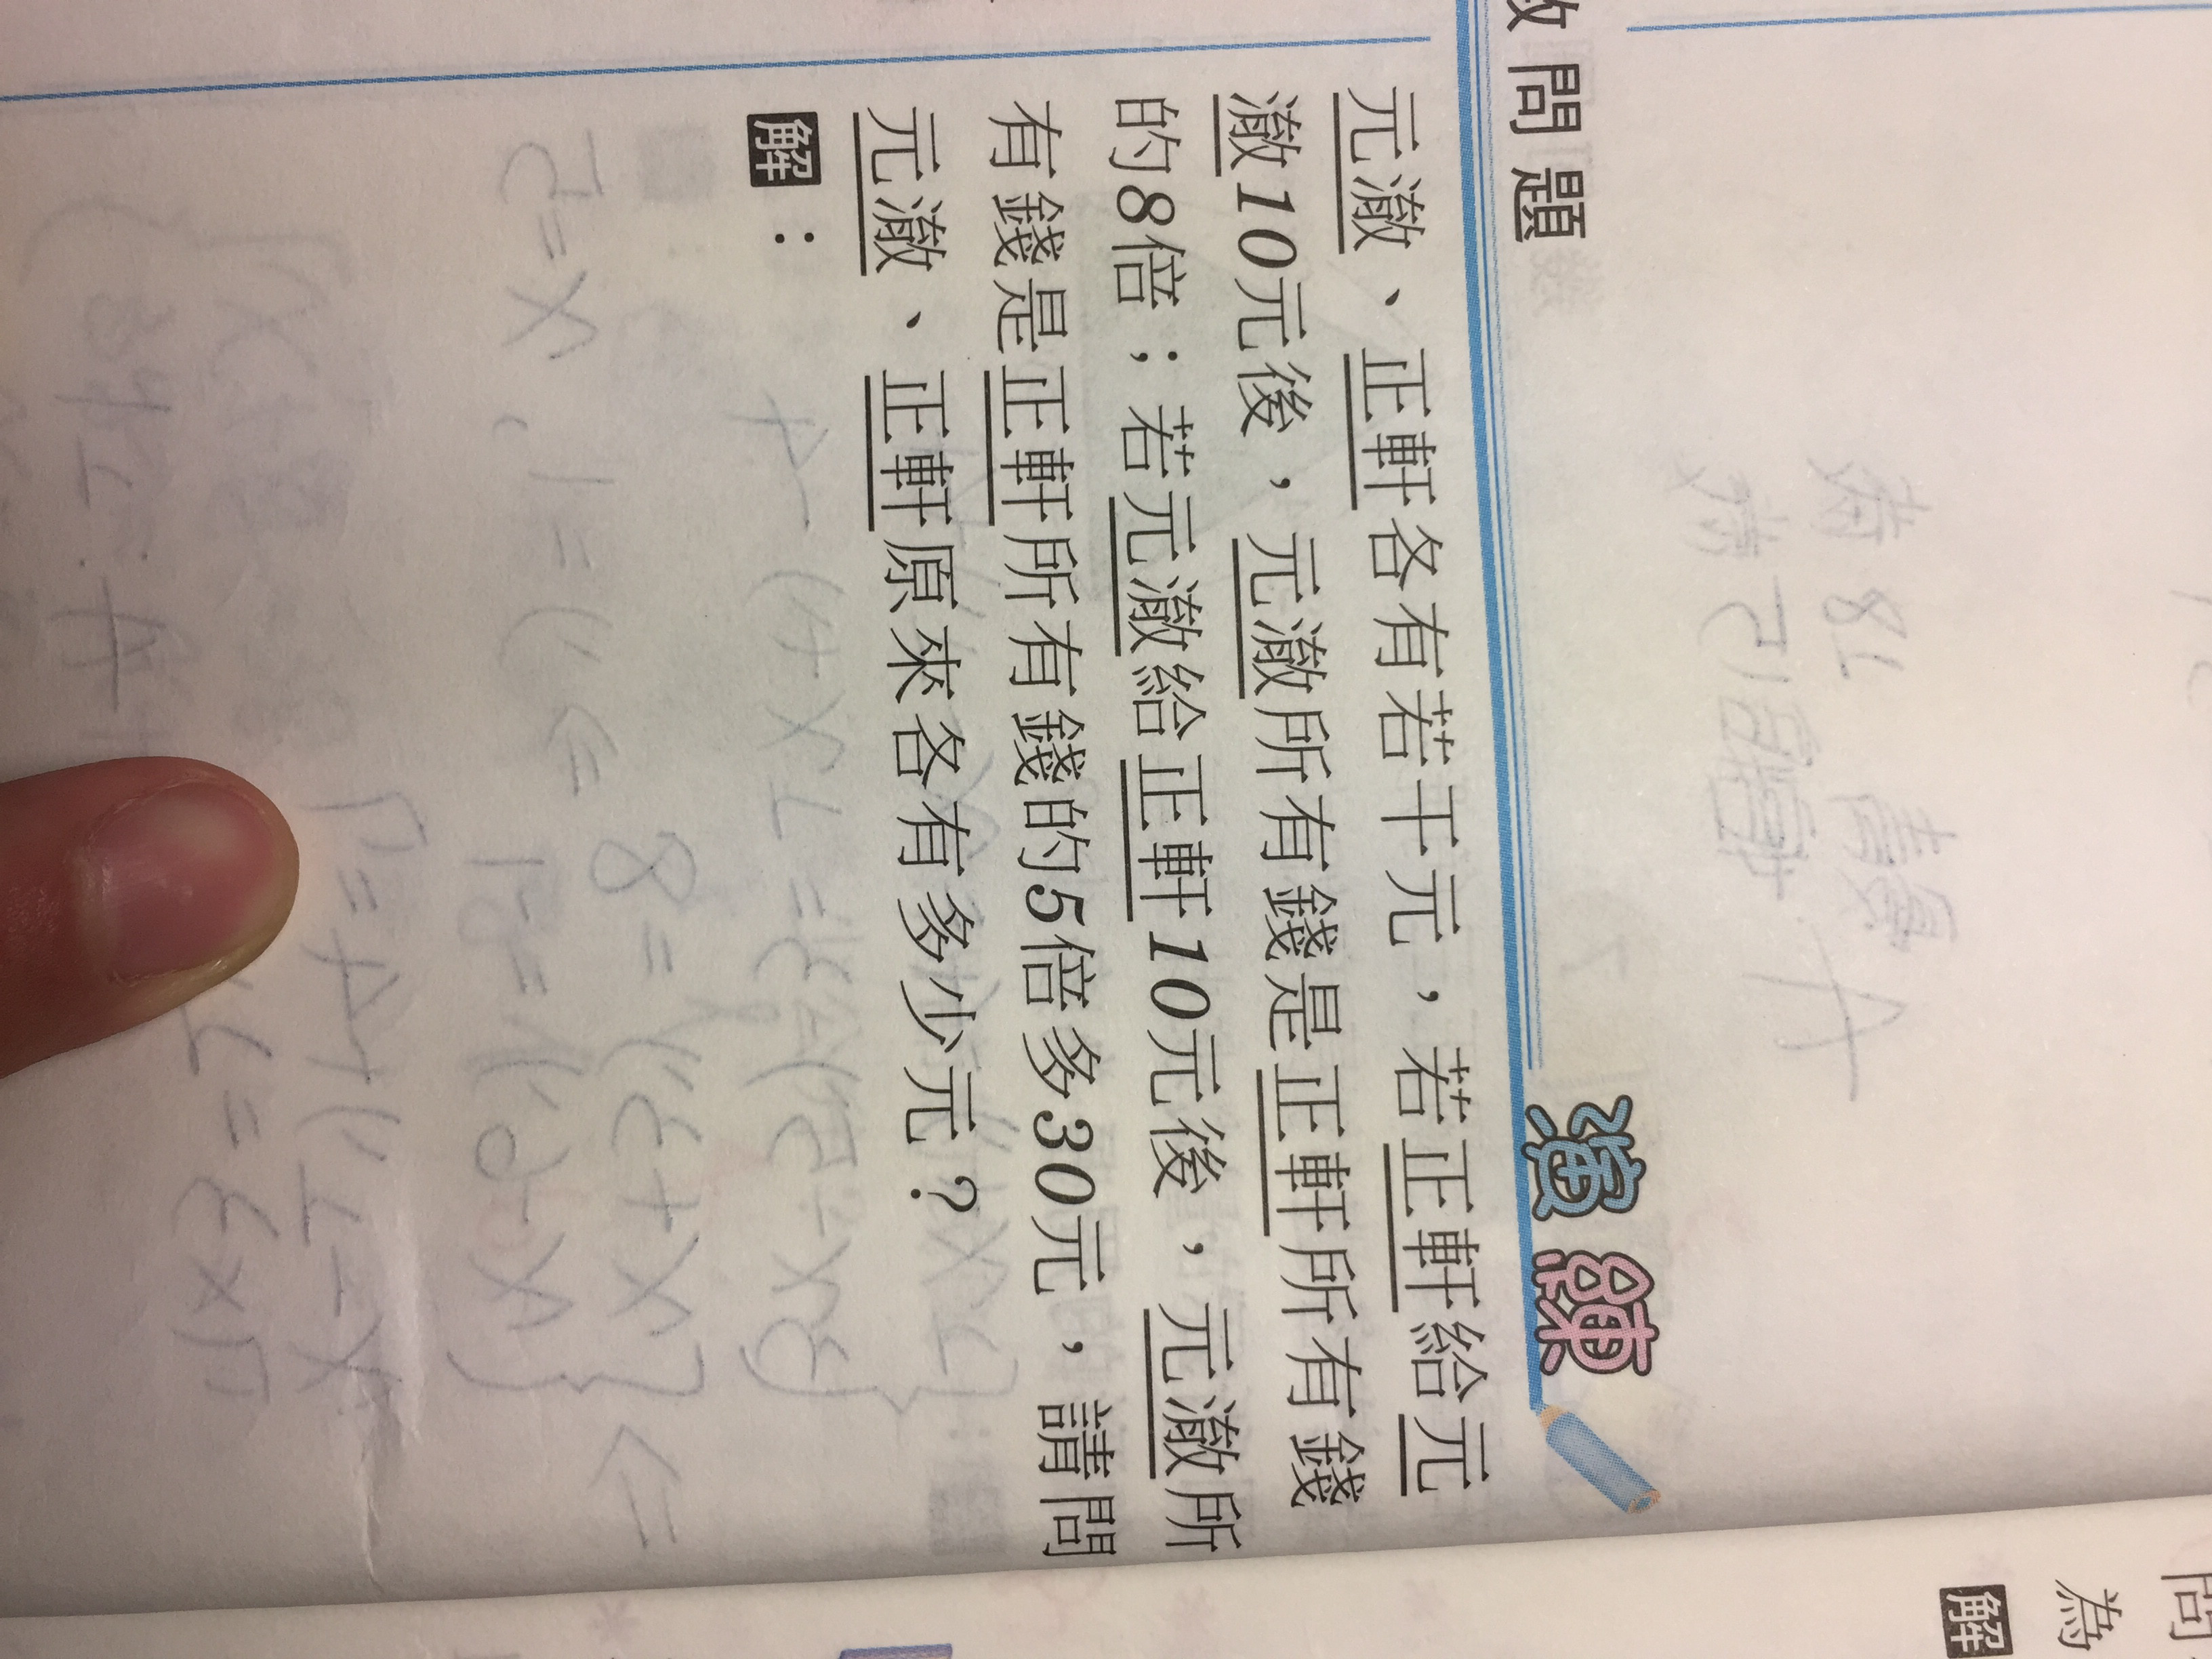 問題
演練
元瀓、正軒各有若干元，若正軒給元
瀓10元後，元瀓所有錢是正軒所有錢
的8倍；若元瀓給正軒10元後，元瀓所
有錢是正軒所有錢的5倍多30元，請問
元瀓、正軒原來各有多少元？
解：
問
為
解